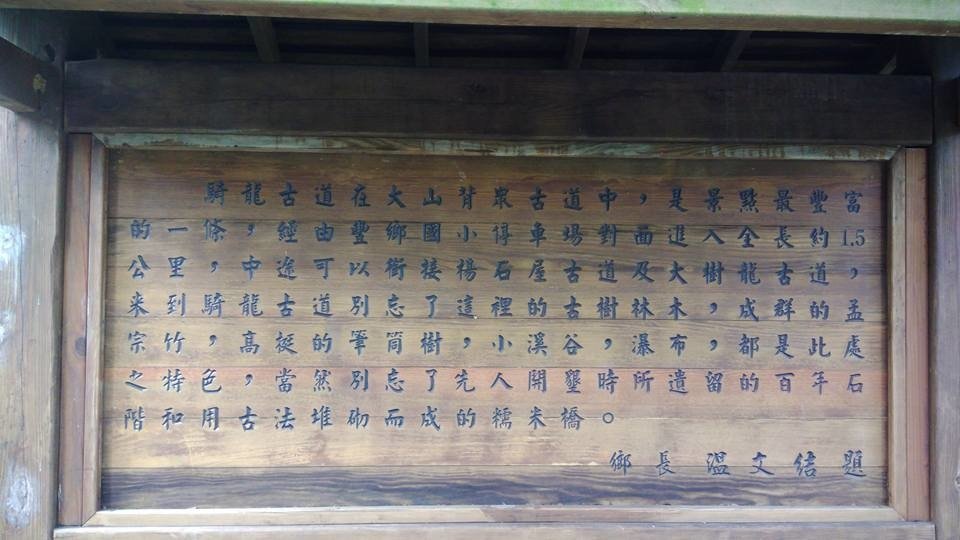 騎龍古道在大山背眾古道中，是景點最豐富
的一條，經由豐鄉國小停車場對面進入全長約1.5
公里，中途可以銜接楊石屋古道及大樹龍古道，
來到騎龍古道別忘了這裡的古樹林木，成群的孟
宗竹，高挺的筆筒樹，小溪谷，瀑布，都是此處
之特色，當然別忘了先人開墾時所遺留的百年石
階和用古法堆砌而成的糯米橋。
鄉長 溫文結 題